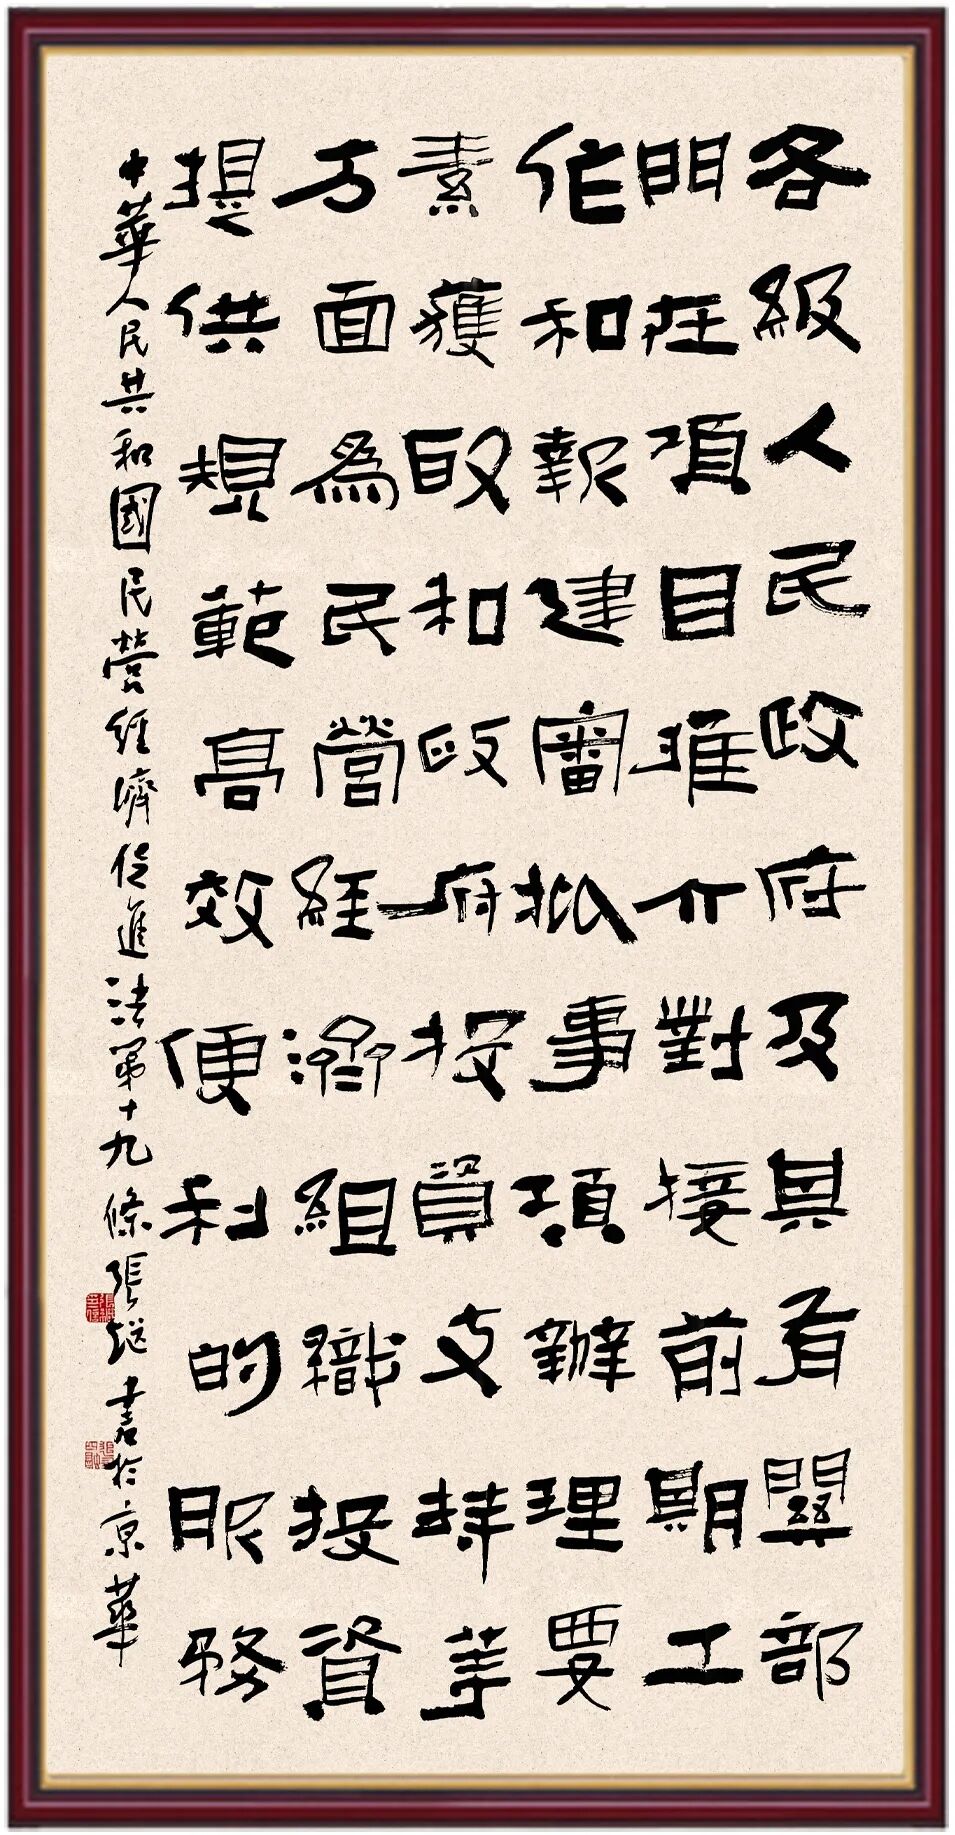 各級人民政府及其有關部
門在項目推介對接前期工
作和報建審批事項辦理要
素獲取和政府投資支持等
方面為民營經濟組織投資
提供規範高效便利的服務
中華人民共和國民營經濟促進法第十九條張继書於京華